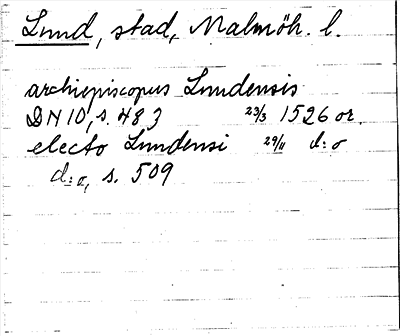 Lund, stad, Malmöh. l.
archiepiscopus Lundensis
DN 10, s. 483 23/3 1526 or.
electo Lundensi 29/11 d:o
d:o, s. 509